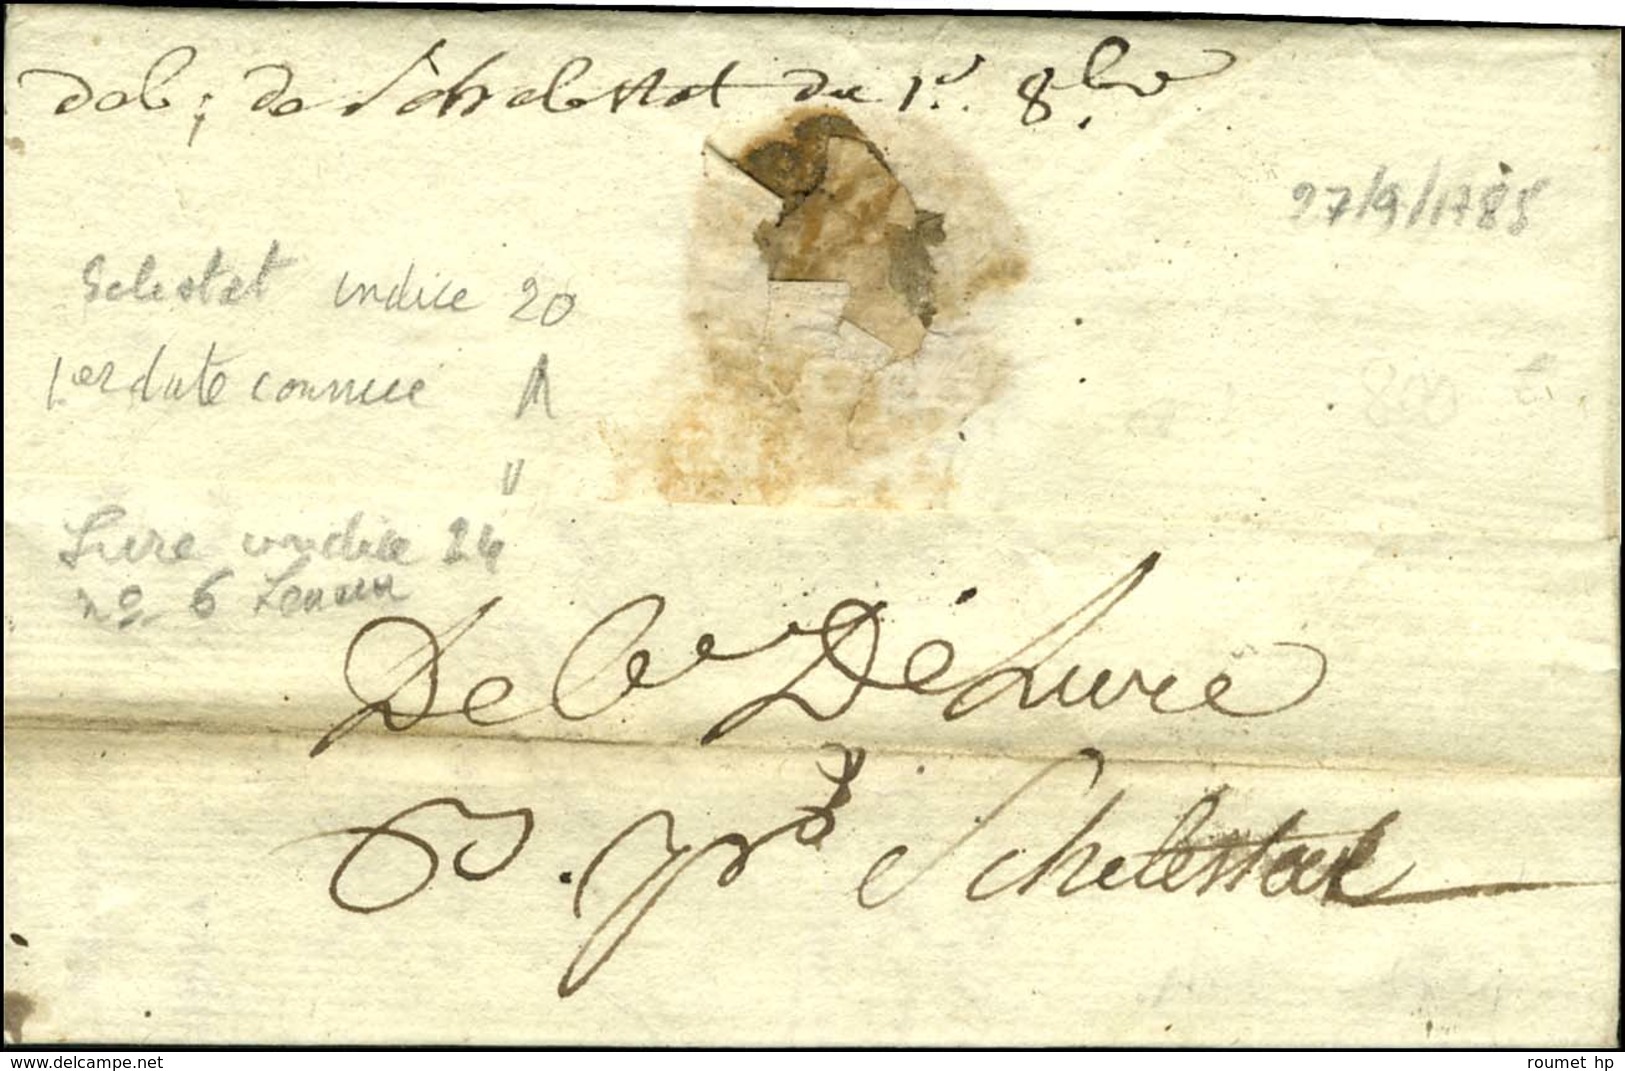 deb; de Schelestat du 1r. 8bre
27/9/1785
Selestat indice 20
1er date connue
800
"
Lure indice 24
no 6 Lenain
Debée De Lure
P. prd Schelestat
www.delcampe.net
roumet hp